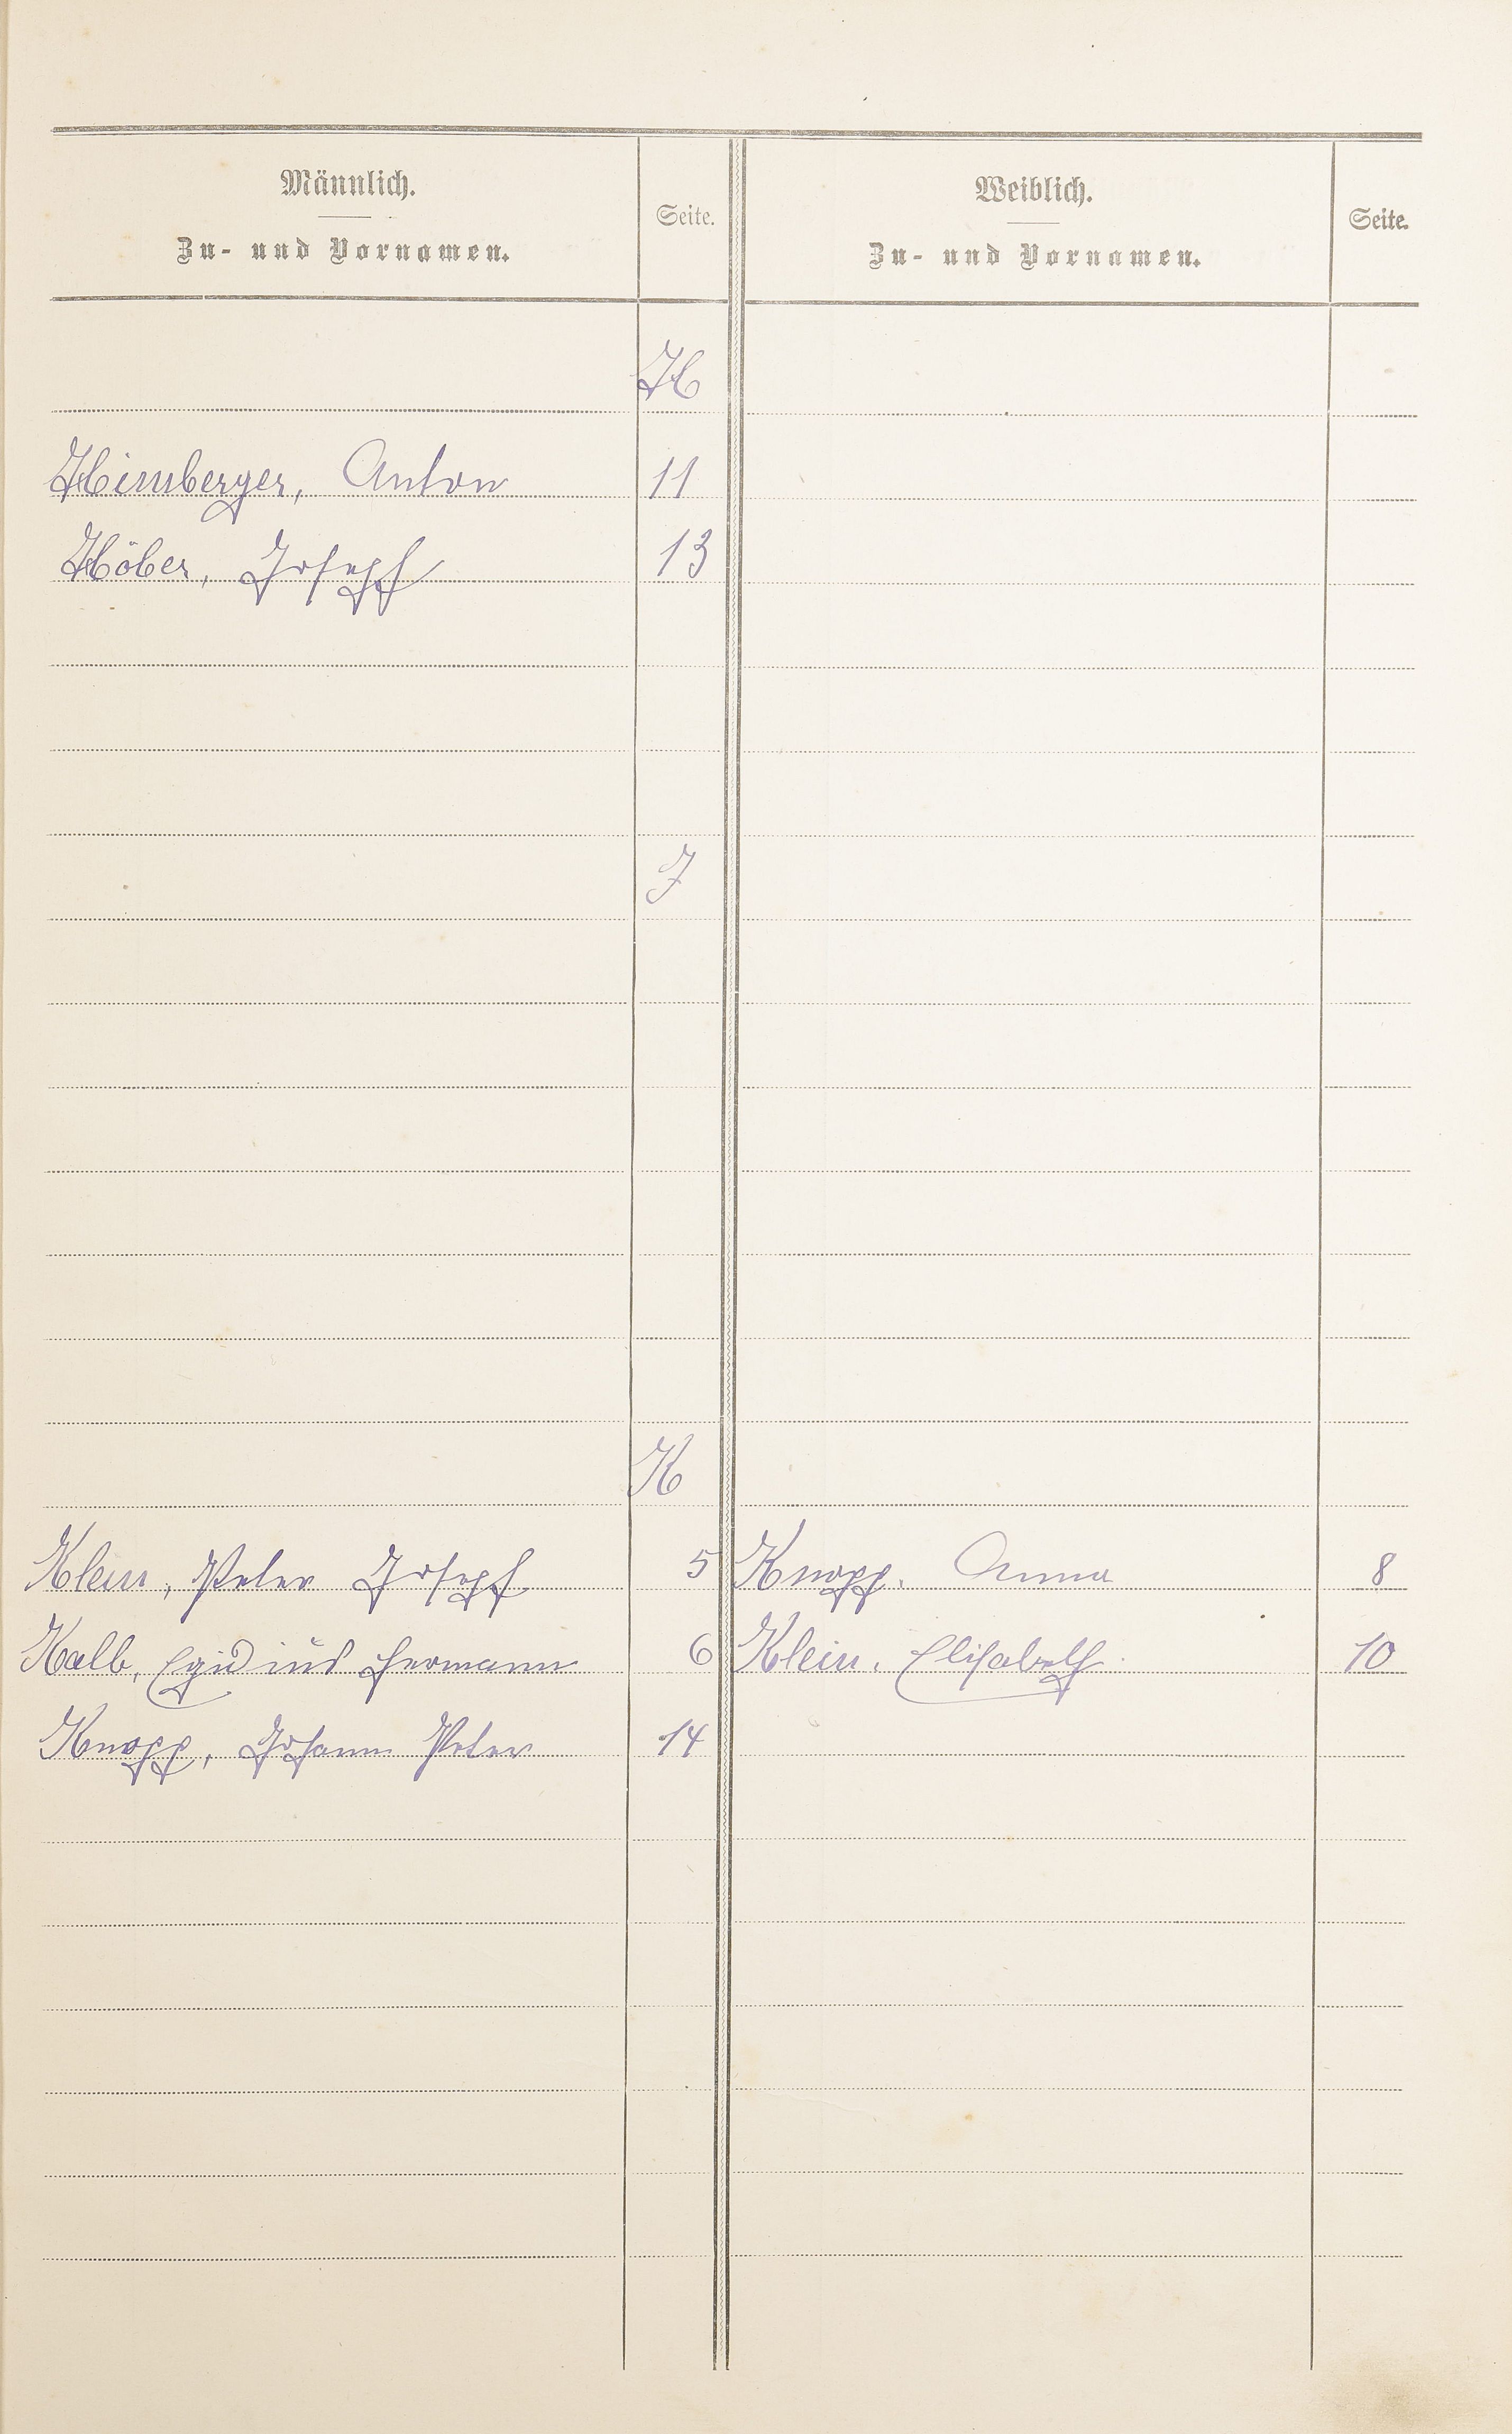 Männlich.
Zu- und Vornamen.
Seite.
Weiblich.
Zu- und Vornamen.
Seite.
H
Himberger, Anton 11
Höber, Joseph 13
J
K
Klein, Peter Joseph 5 Knopp, Anna 8
Kalb, Egidius Hermann 6 Klein, Elisabeth 10
Knopp, Johann Peter 14